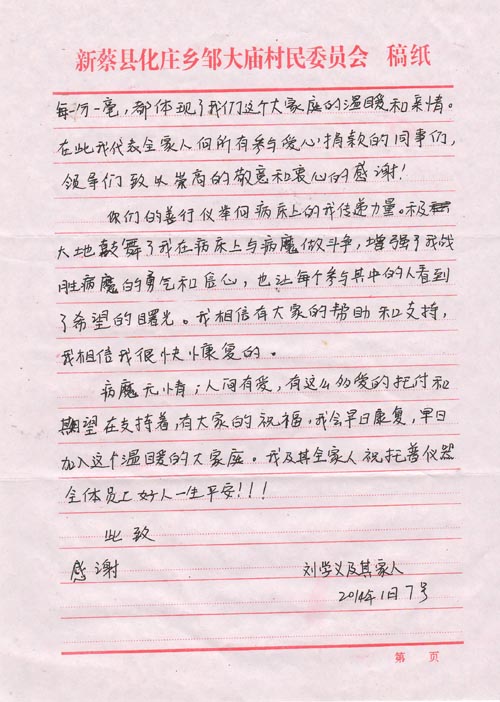 新蔡县化庄乡邹大庙村民委员会 稿纸
每份一毫,都体现了我们这个大家庭的温暖和亲情。
在此我代表全家人向所有参与爱心捐款的同事们,
领导们致以崇高的敬意和衷心的感谢!
你们的善行仪举向病床上的我传递力量。极
大地鼓舞了我在病床上与病魔做斗争,增强了我战
胜病魔的勇气和信心,也让每个参与其中的人看到
了希望的曙光。我相信有大家的帮助和支持,
我相信我很快恢复的。
病魔无情;人间有爱,有这么多爱的托付和
期望在支持着,有大家的祝福,我会早日康复,早日
加入这个温暖的大家庭。我及其全家人祝托普仪器
全体员工好人一生平安!!!
此致
感谢
刘学义及其家人
2014年1日7号
第 页